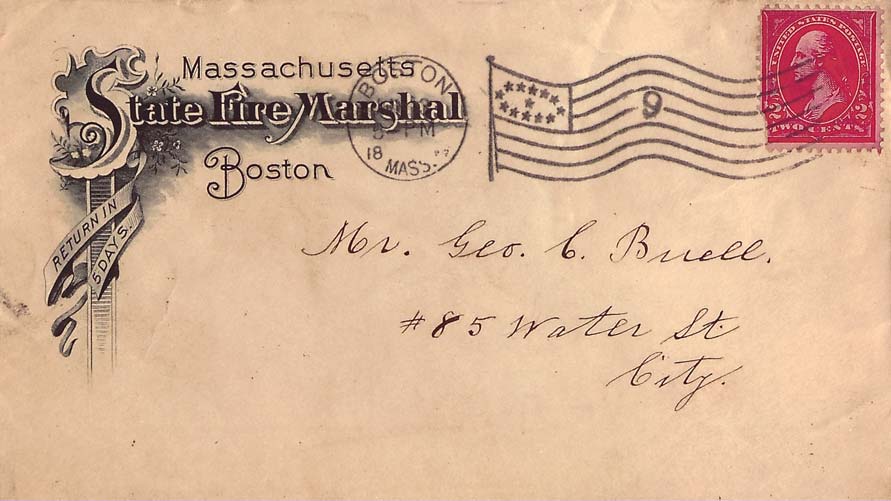 Massachusetts
State Fire Marshal
Boston
RETURN IN
5 DAYS.
BOSTON
PM
18
MASS.
9
UNITED STATES POSTAGE
2 2
TWO CENTS
Mr. Geo. C. Buell.
#85 Water St.
City.